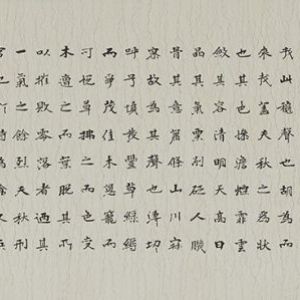 哉此秋聲也胡為而
來哉蓋夫秋之為狀
也其色慘淡煙霏雲
斂其容清明天高日
晶其氣慄冽砭人肌
骨其意蕭條山川寂
寥故其為聲也淒切
呼號憤發豐草綠縟
而爭茂佳木蔥蘢而
可悅草拂之而色變
木遭之而葉脫其所
以摧敗零落者乃其
一氣之餘烈夫秋刑
官也於時為陰又兵